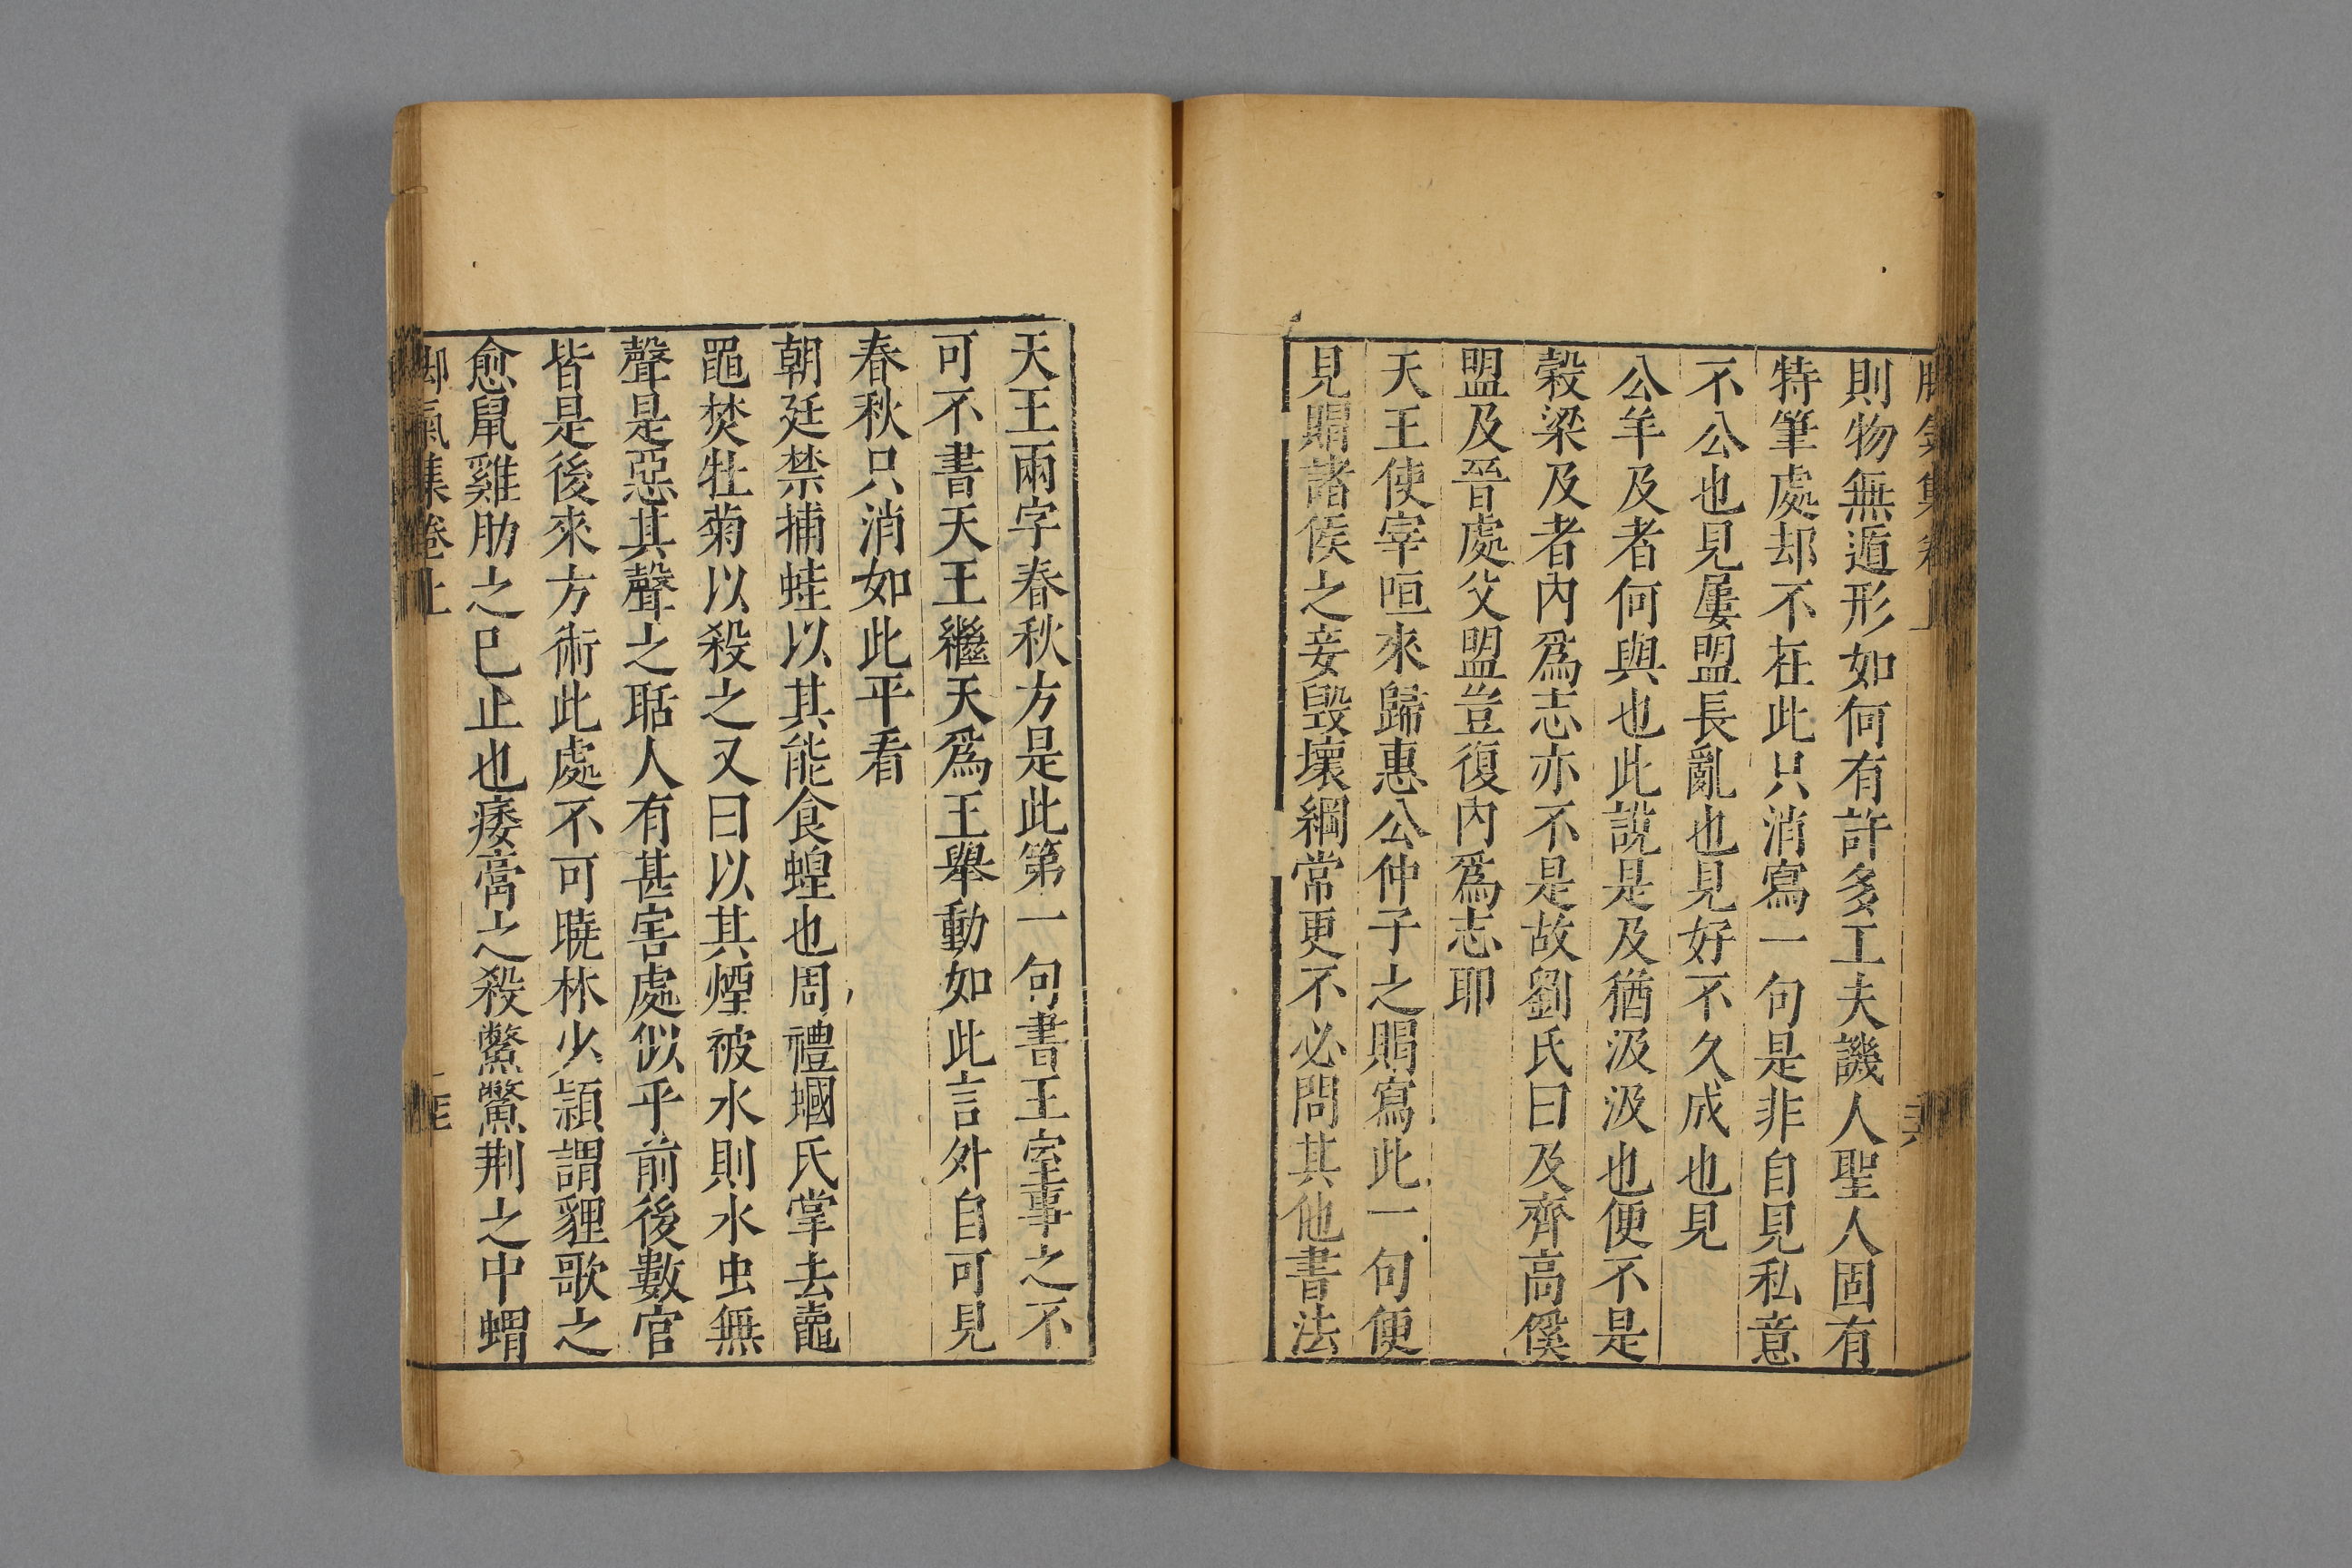 則物無遁形如何有許多工夫譏人聖人固有
特筆處却不在此只消寫一句是非自見私意
不公也見屢盟長亂也見好不久成也見
公羊及者何與也此說是及猶汲汲也便不是
榖梁及者內爲志亦不是故劉氏曰及齊高傒
盟及晉處父盟豈復內爲志耶
天王使宰咺來歸惠公仲子之賵寫此一句便
見賵諸侯之妾毀壞綱常更不必問其他書法
天王兩字春秋方是此第一句書王室事之不
可不書天王繼天爲王舉動如此言外自可見
春秋只消如此平看
朝廷禁捕蛙以其能食蝗也周禮蟈氏掌去鼃
黽焚牡菊以殺之又曰以其煙被水則水虫無
聲是惡其聲之聒人有甚害處似乎前後數官
皆是後來方術此處不可曉林少穎謂貍歌之
愈鼠雞肋之已止也痿膏之殺鱉鱉荆之中蝟
脚氣集卷上